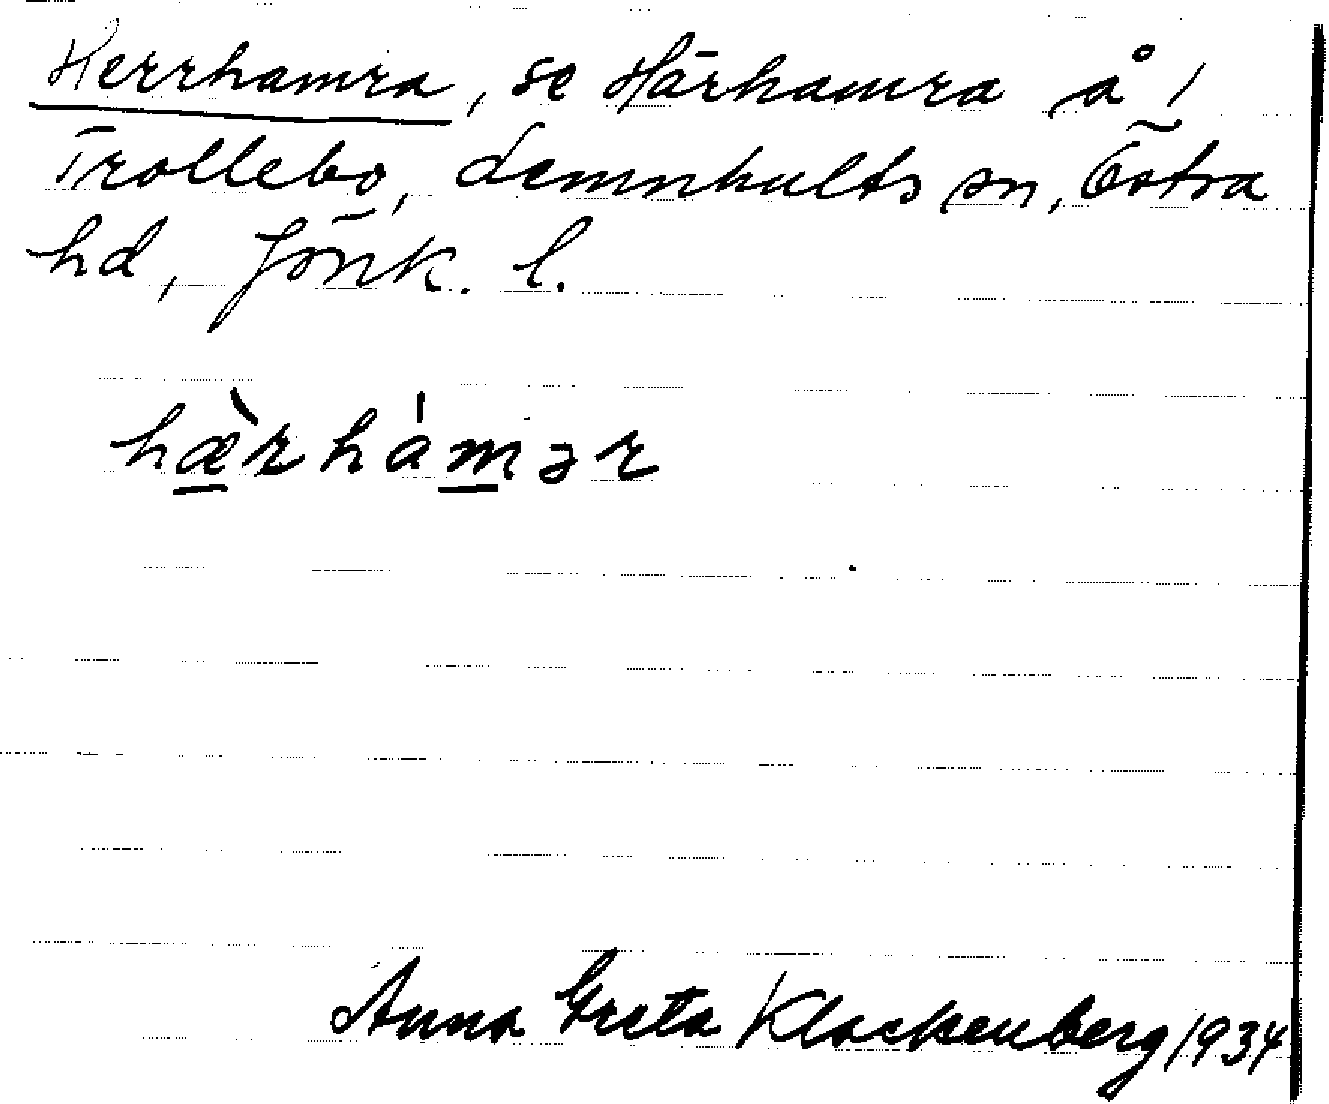 Herrhamra, se Härhamra å 1
Trollebo, Lemnhults sn, Östra
hd, Jönk. l.
hæ̀rhámər
Anna Greta Klackenberg 1934